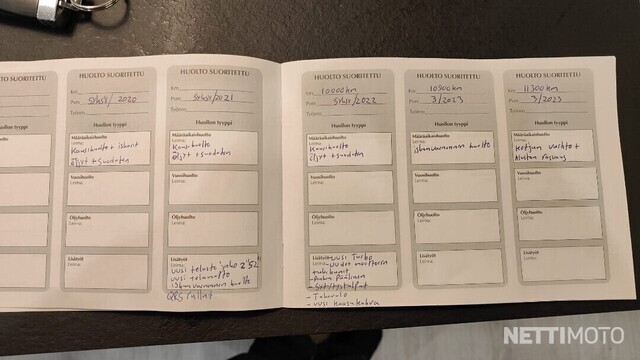 HUOLTO SUORITETTU
Pvm: syksy/ 2020
Työnro:
Huollon tyyppi
Määräaikaishuolto
Leima:
Kausihuolto + iskarit
öljyt + suodatin
Vuosihuolto
Leima:
Öljyhuolto
Leima:
Lisätyöt
Leima:
HUOLTO SUORITETTU
Km:
Pvm: syksy/2021
Työnro:
Huollon tyyppi
Määräaikaishuolto
Leima:
Kausihuolto
öljyt + suodatin
Vuosihuolto
Leima:
Öljyhuolto
Leima:
Lisätyöt
Leima:
uusi telasto jako 2"52"
uusi telamatto
iskunvaimennin huolto
QRS rullat
HUOLTO SUORITETTU
Km: 10000km
Pvm: syksy/2022
Työnro:
Huollon tyyppi
Määräaikaishuolto
Leima:
Kausihuolto
öljyt + suodatin
Vuosihuolto
Leima:
Öljyhuolto
Leima:
Lisätyöt
Leima: uusi Turbo
- uudet moottorin
tukikumit
- Sytytystulpat
- Takavalo
- uusi kaasukahva
HUOLTO SUORITETTU
Km: 10900km
Pvm: 3/2023
Työnro:
Huollon tyyppi
Määräaikaishuolto
Leima:
iskunvaimennin huolto
Vuosihuolto
Leima:
Öljyhuolto
Leima:
Lisätyöt
Leima:
HUOLTO SUORITETTU
Km: 11300km
Pvm: 3/2023
Työnro:
Huollon tyyppi
Määräaikaishuolto
Leima:
Ketjun vaihto +
alustan rasvaus
Vuosihuolto
Leima:
Öljyhuolto
Leima:
Lisätyöt
Leima:
NETTIMOTO